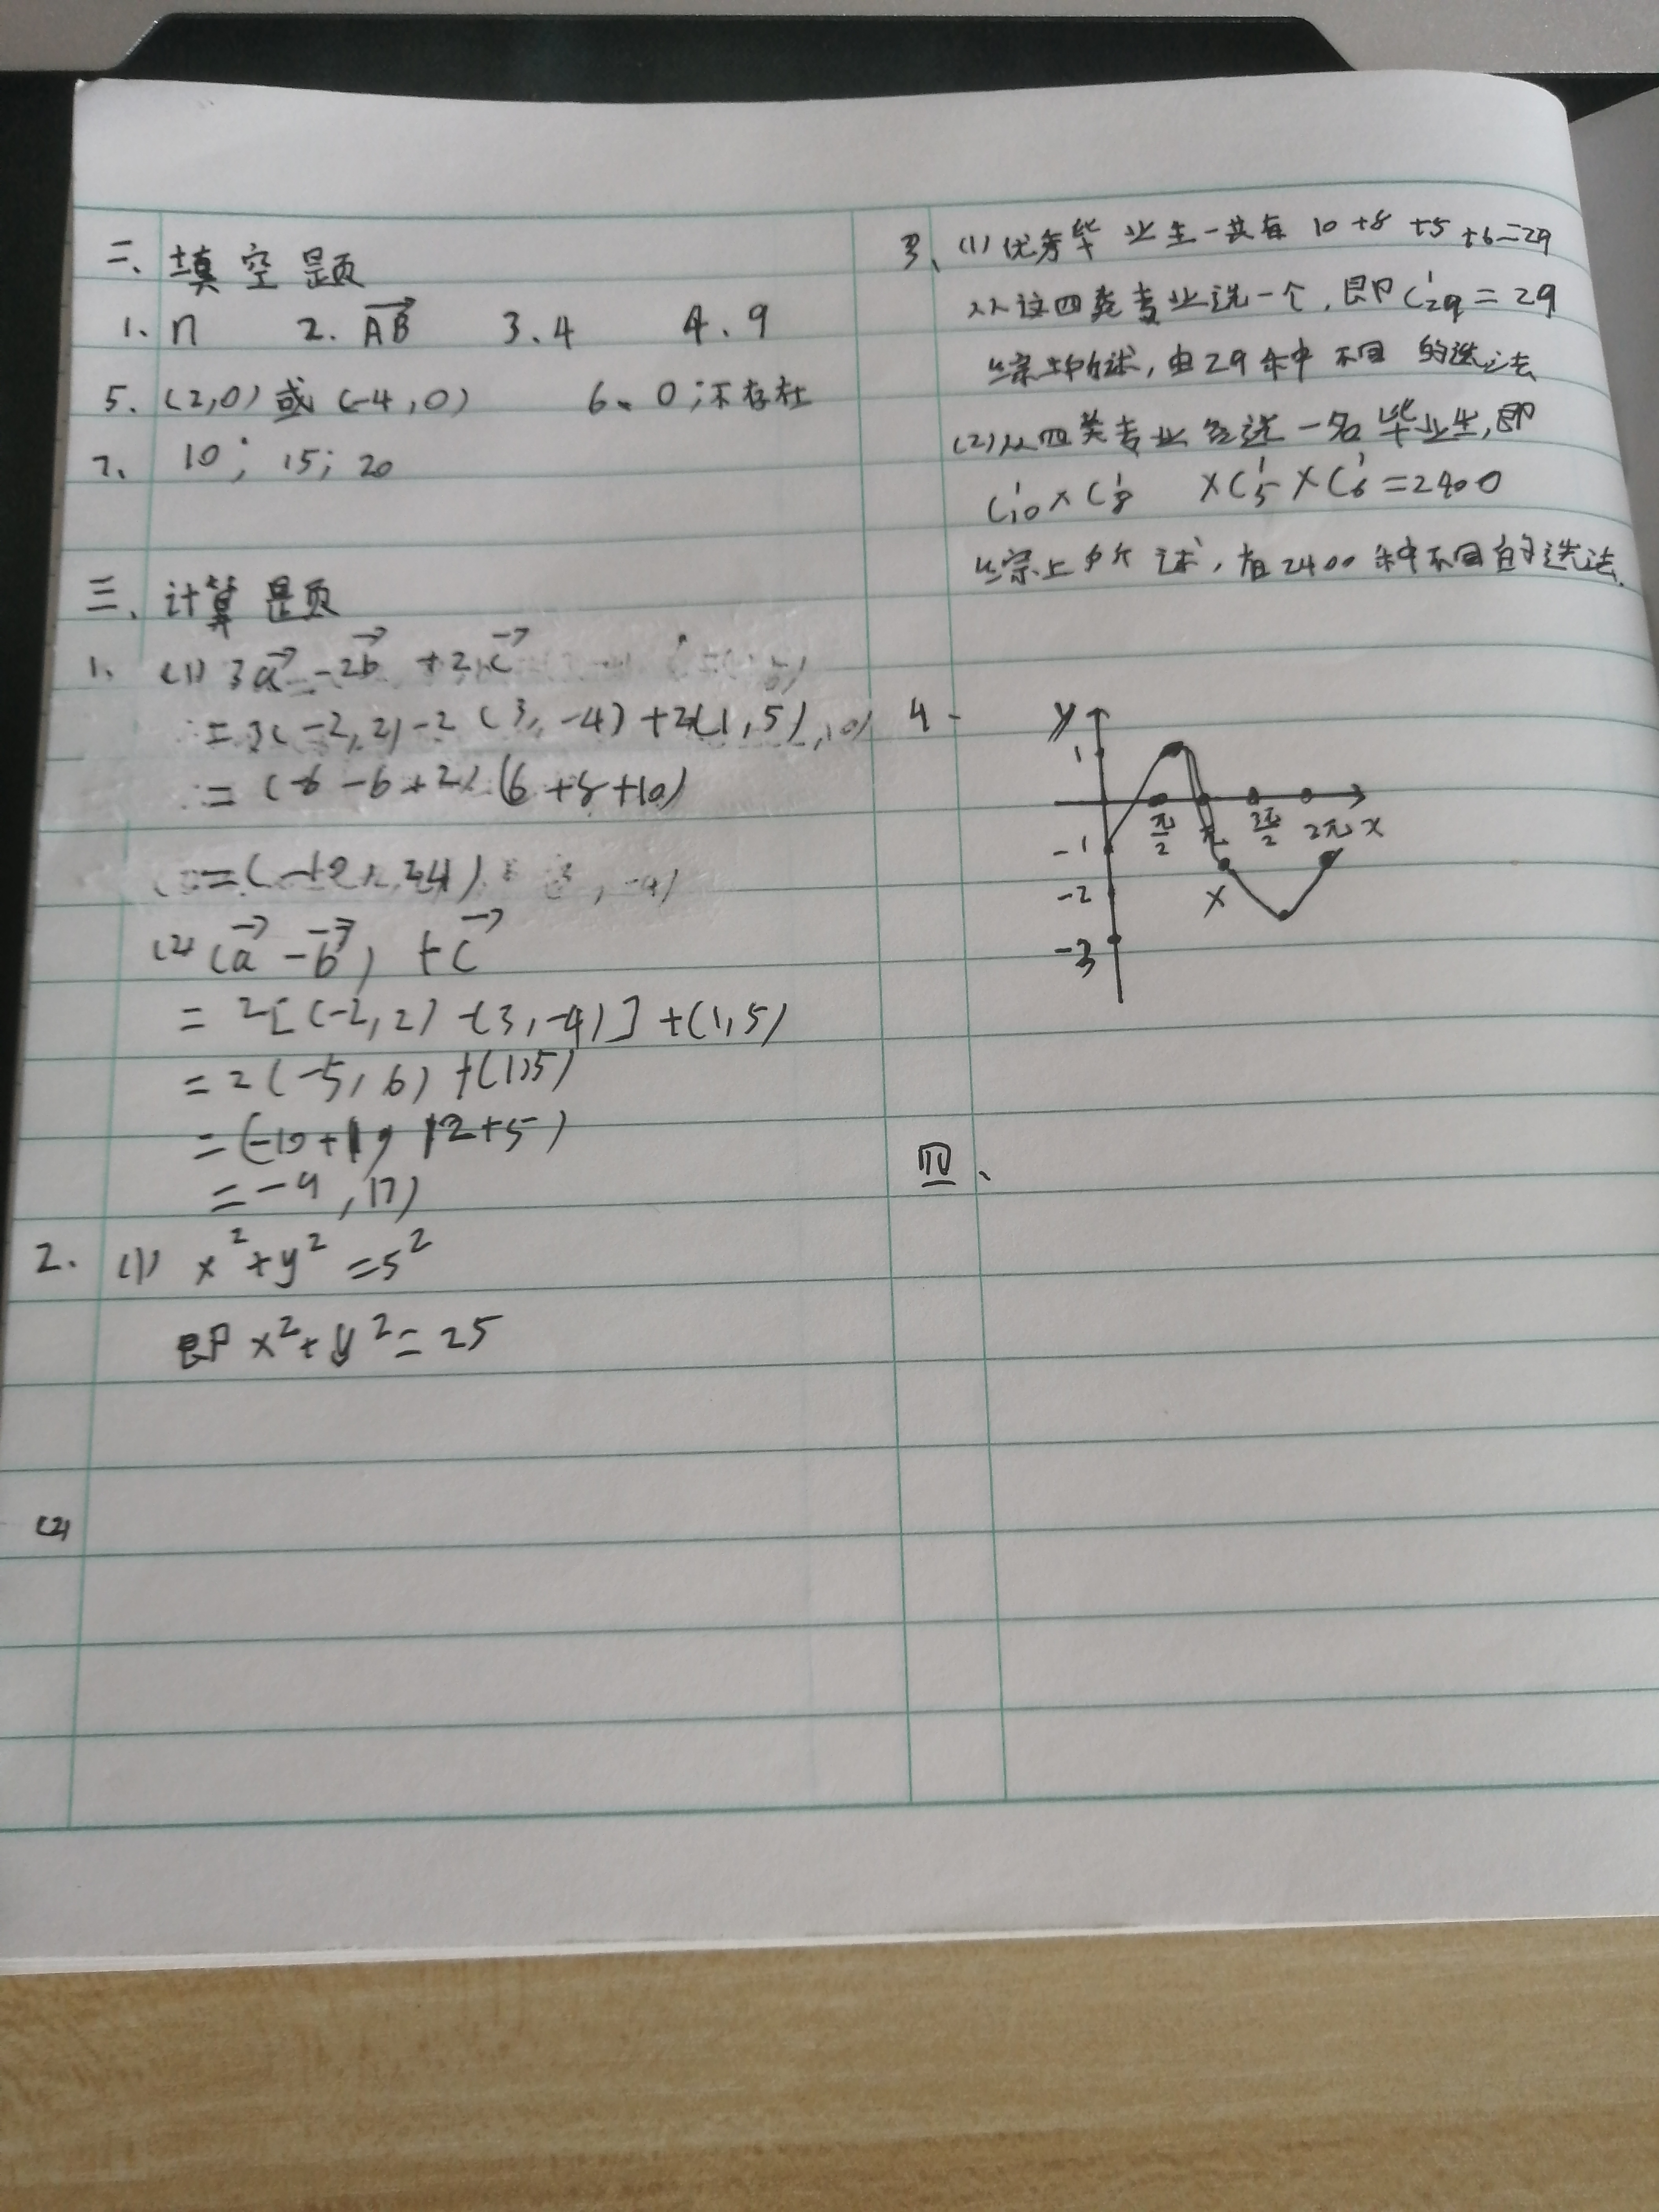 二、填空题
1. n 2. AB 3. 4 4. 9
5. (2,0) 或 (-4,0) 6. 0;不存在
7. 10; 15; 20
三、计算题
1. (1) 3a - 2b + 2c
= 3(-2,2) -2 (3,-4) + 2(1,5)
= (-6 -6 +2) (6+8+10)
= ( , 24)
(2) (a - b) + c
= 2[(-2,2) -(3,-4)] +(1,5)
= 2(-5,6) +(1,5)
= (-10+1, 12+5)
= -9, 17)
2. (1) x²+y²=5²
即 x²+y²=25
(2)
3、(1) 优秀毕业生一共有 10+8+5+6=29
从这四类专业选一个,即C¹₂₉=29
综上所述,由29种不同的选法
(2) 从四类专业各选一名毕业生,即
C¹₁₀×C¹₈ ×C¹₅×C¹₆=2400
综上所述,有2400种不同的选法.
4.
y
1
-1
-2
-3
π/2 π 3π/2 2π x
x
四、